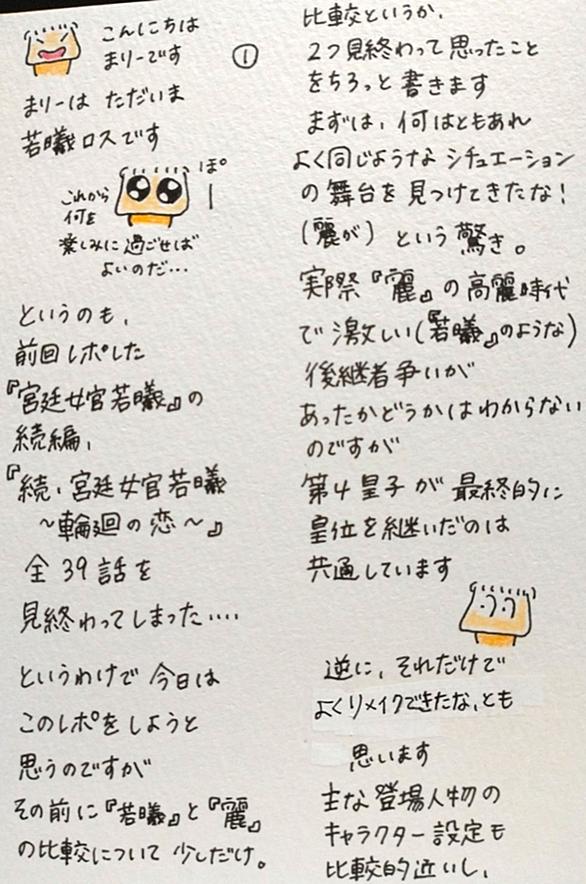 こんにちは
まりーです
①
まりーは ただいま
若曦ロスです
ぽ°ー
これから
何を
楽しみに過ごせば
よいのだ…
というのも、
前回レポした
『宮廷女官若曦』の
続編、
『続・宮廷女官若曦
～輪廻の恋～』
全39話を
見終わってしまった‥‥
というわけで今日は
このレポをしようと
思うのですが
その前に『若曦』と『麗』
の比較について少しだけ。
比較というか、
2つ見終わって思ったこと
をちろっと書きます
まずは、何はともあれ
よく同じようなシチュエーション
の舞台を見つけてきたな!
(麗が)という驚き。
実際『麗』の高麗時代
で激しい(『若曦』のような)
後継者争いが
あったかどうかはわからない
のですが
第4皇子が最終的に
皇位を継いだのは
共通しています
逆に、それだけで
よくリメイクできたな、とも
思います
主な登場人物の
キャラクター設定も
比較的近いし、